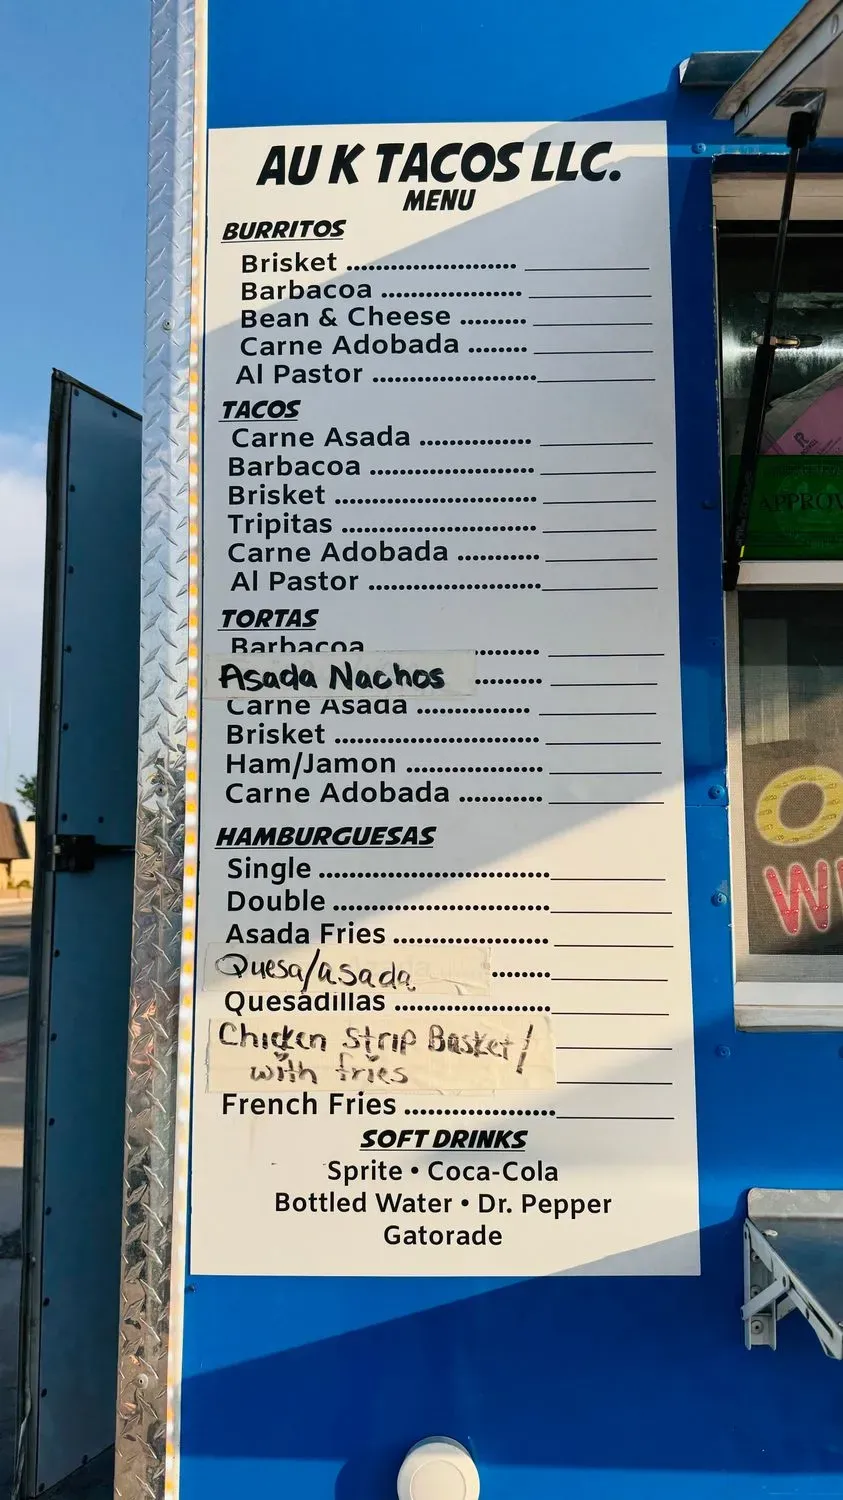 AU K TACOS LLC.
MENU
BURRITOS
Brisket ........................ ________
Barbacoa .................... ________
Bean & Cheese .......... ________
Carne Adobada ........ ________
Al Pastor ....................... ________
TACOS
Carne Asada ............... ________
Barbacoa ...................... ________
Brisket ........................... ________
Tripitas .......................... ________
Carne Adobada ........... ________
Al Pastor ........................ ________
TORTAS
Barbacoa ......... ________
Asada Nachos ......... ________
Carne Asada ............... ________
Brisket ........................... ________
Ham/Jamon ................. ________
Carne Adobada ........... ________
HAMBURGUESAS
Single ............................... ________
Double ............................. ________
Asada Fries .................... ________
Quesa/asada ........ ________
Quesadillas .................... ________
Chicken Strip Basket/ ________
with fries ________
French Fries .................... ________
SOFT DRINKS
Sprite • Coca-Cola
Bottled Water • Dr. Pepper
Gatorade